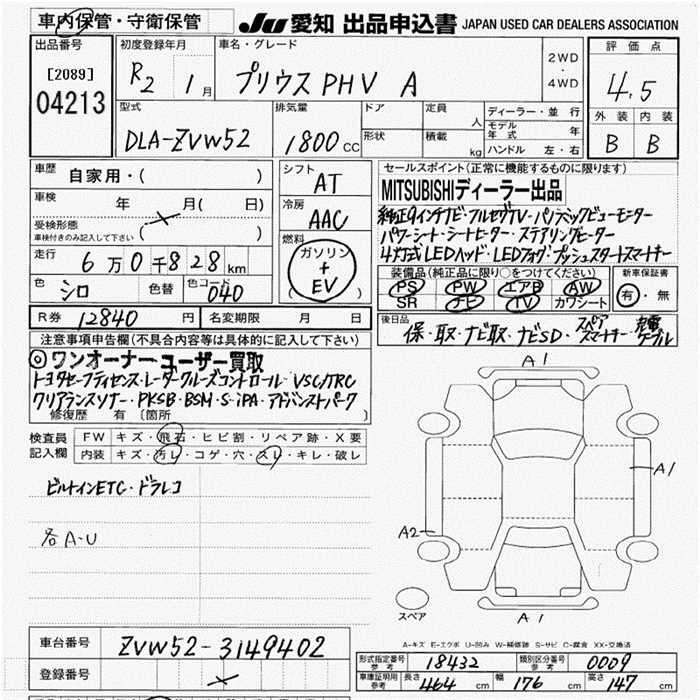 車内保管・守衛保管
JU 愛知 出品申込書 JAPAN USED CAR DEALERS ASSOCIATION
出品番号
[2089]
04213
初度登録年月
R2 1月
車名・グレード
プリウスPHV A
2WD
・
4WD
評価点
4.5
外装 内装
B B
型式
DLA-ZVW52
排気量
1800 CC
ドア
形状
定員 人
積載 kg
ディーラー・並行
モデル年式 年
ハンドル 左・右
車歴
自家用・( )
車検 年 月( 日)
受検形態
車検付きのみ記入して下さい ( )
走行
6万0千828km
色 シロ 色替 色コード 040
R券 12840 円 名変期限 月 日
シフト
AT
冷房
AAC
燃料
ガソリン
+
EV
セールスポイント(正常に機能するものに限ります)
MITSUBISHIディーラー出品
純正9インチナビ・フルセグTV・パノラミックビューモニター
パワーシート・シートヒーター・ステアリングヒーター
4灯式LEDヘッド・LEDフォグ・プッシュスタートスマートキー
装備品(純正品に限り○をつけてください)
PS PW エアB AW
SR ナビ TV カワシート
新車保証書
有・無
後日品
保・取・ナビ取・ナビSD・スペアスマートキー・充電ケーブル
注意事項申告欄(不具合内容等は具体的に記入して下さい)
◎ワンオーナー・ユーザー買取
トヨタセーフティセンス・レーダークルーズコントロール・VSC/TRC
クリアランスソナー・PKSB・BSM・S-iPA・アドバンストパーク
修復歴 有 〔箇所
検査員
記入欄
FW キズ・飛石・ヒビ割・リペア跡・X要
内装 キズ・汚レ・コゲ・穴・スレ・キレ・破レ
ビルトインETC・ドラレコ
各A-U
A1
A1
A2
A1
スペア
A-キズ E-エクボ U-凹み W-補修跡 S-サビ C-腐食 XX-交換済
車台番号 ZVW52-3149402
登録番号
形式指定番号 参考 18432 類別区分番号 参考 0009
車庫証明用 参考 長さ 464 cm 幅 176 cm 高さ 147 cm